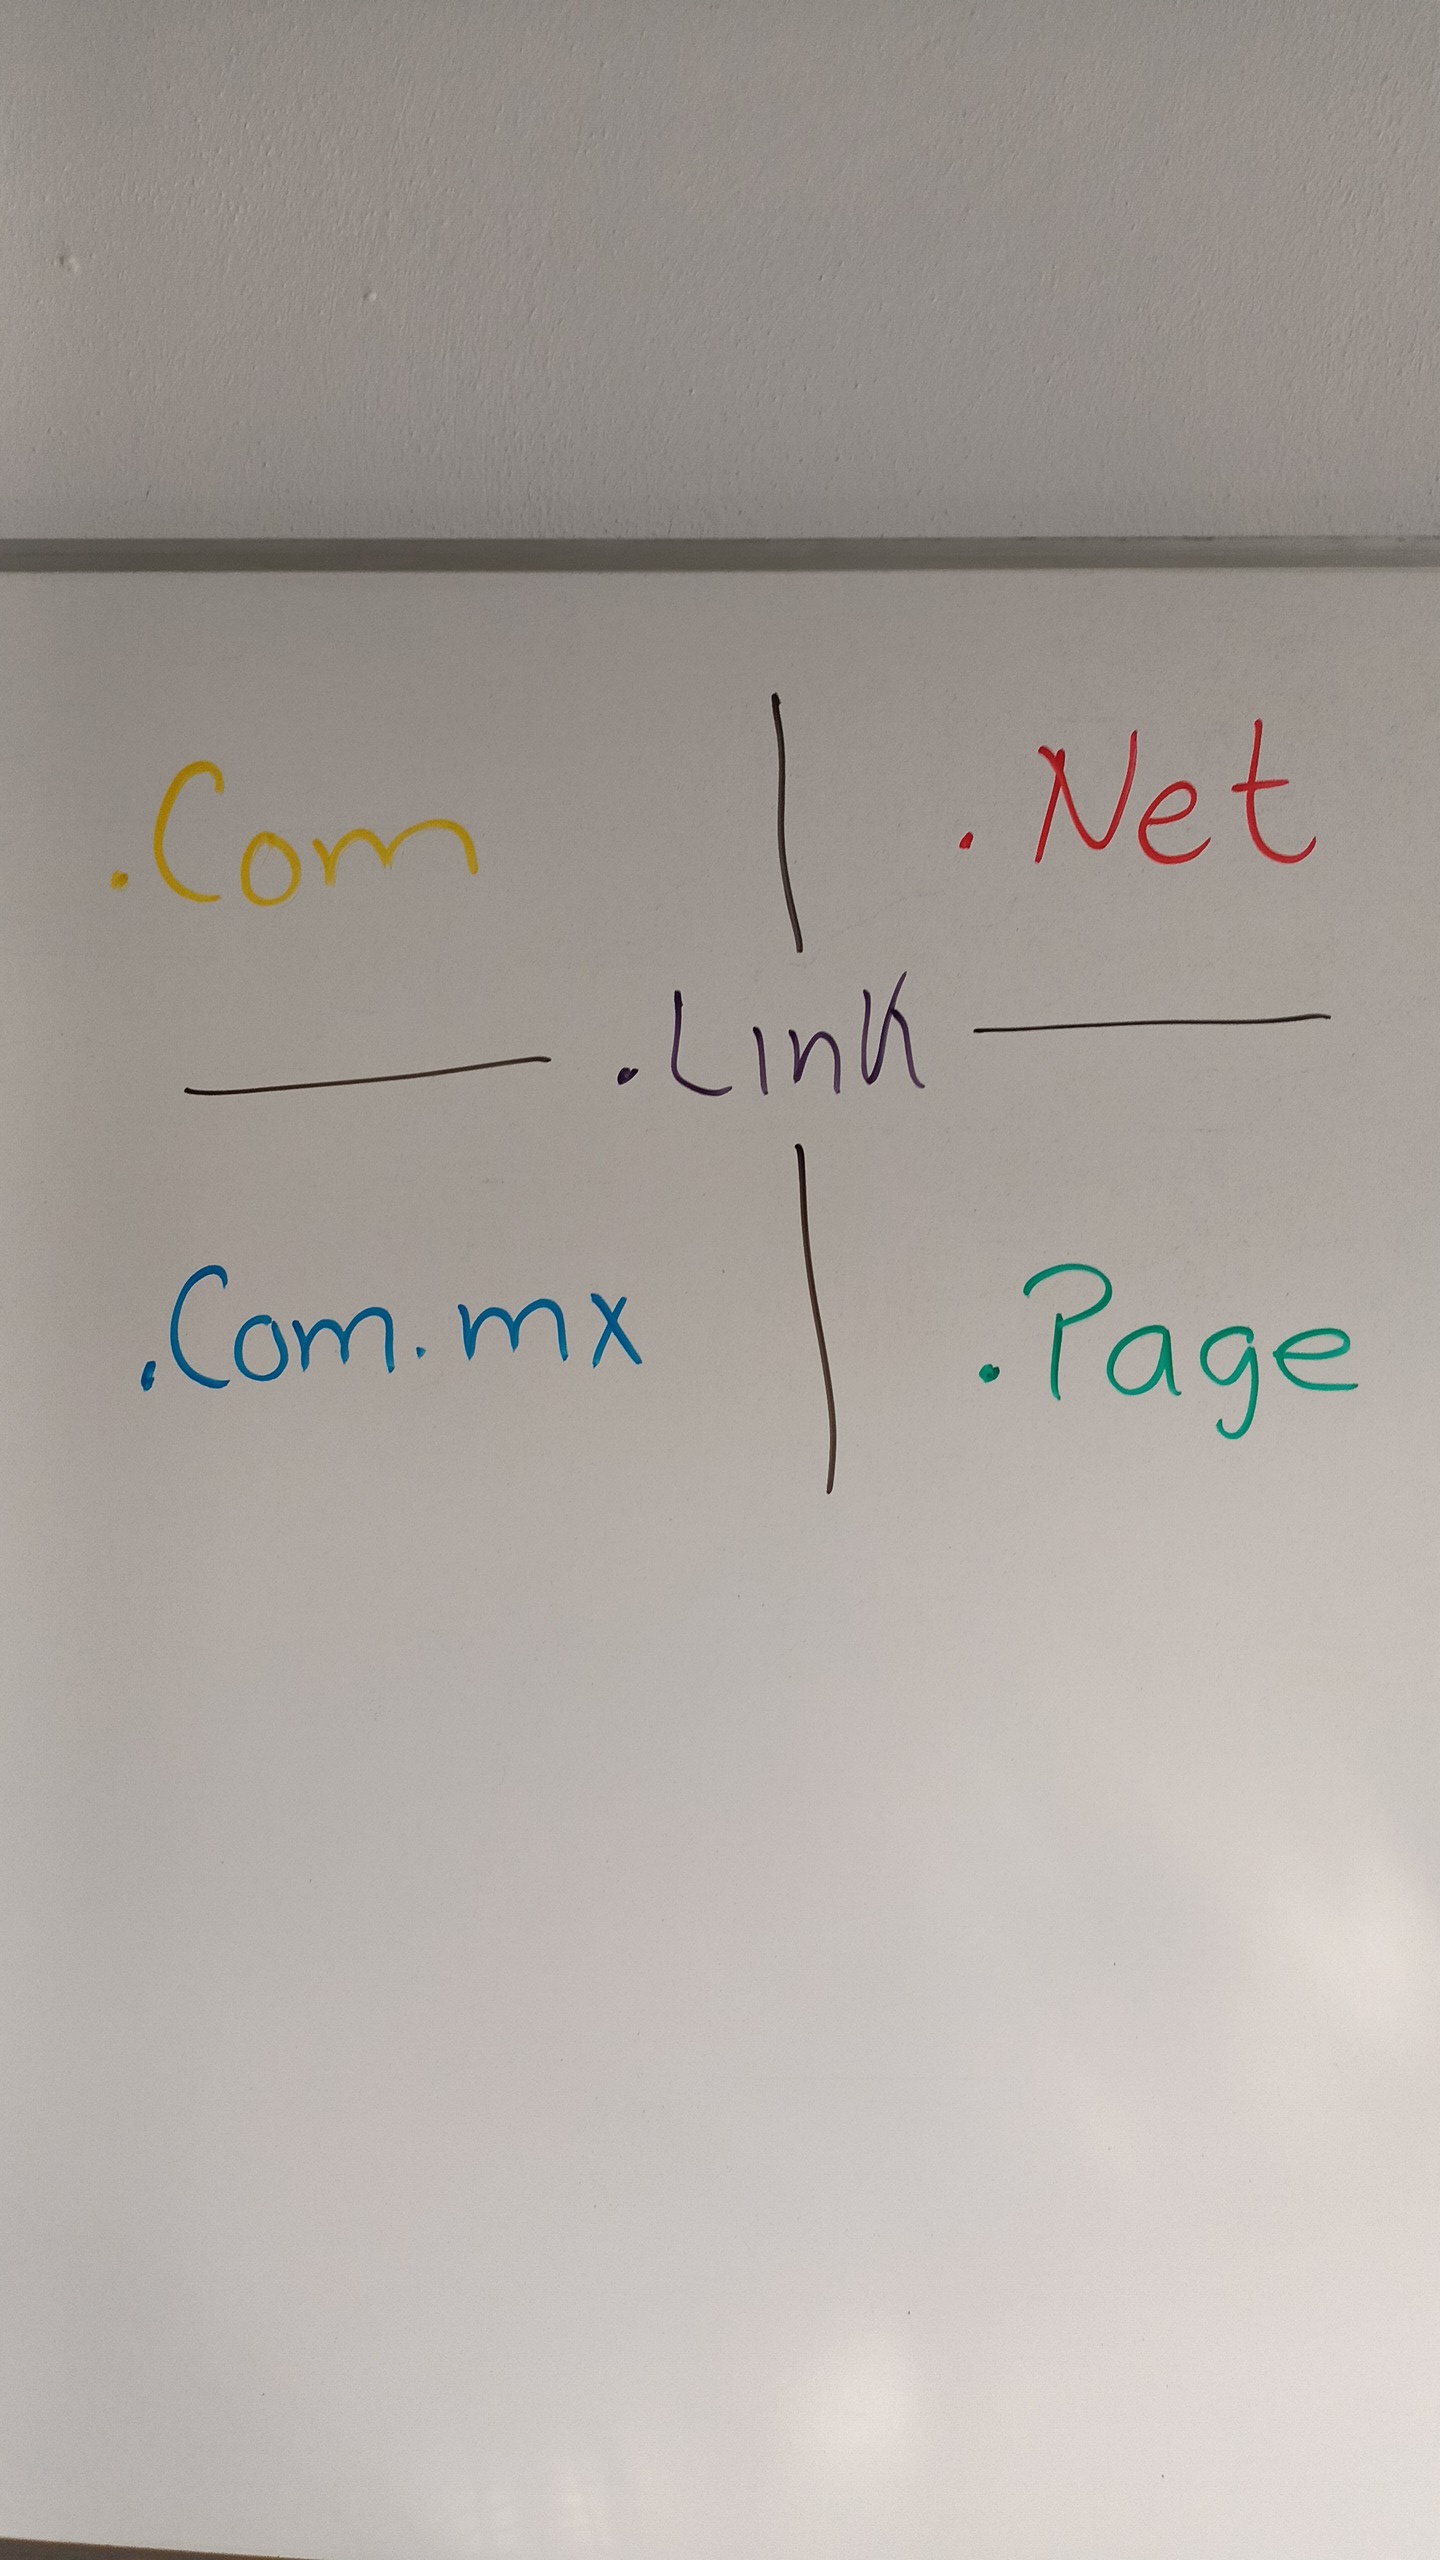 .Com
.Net
.Link
.Com.mx
.Page